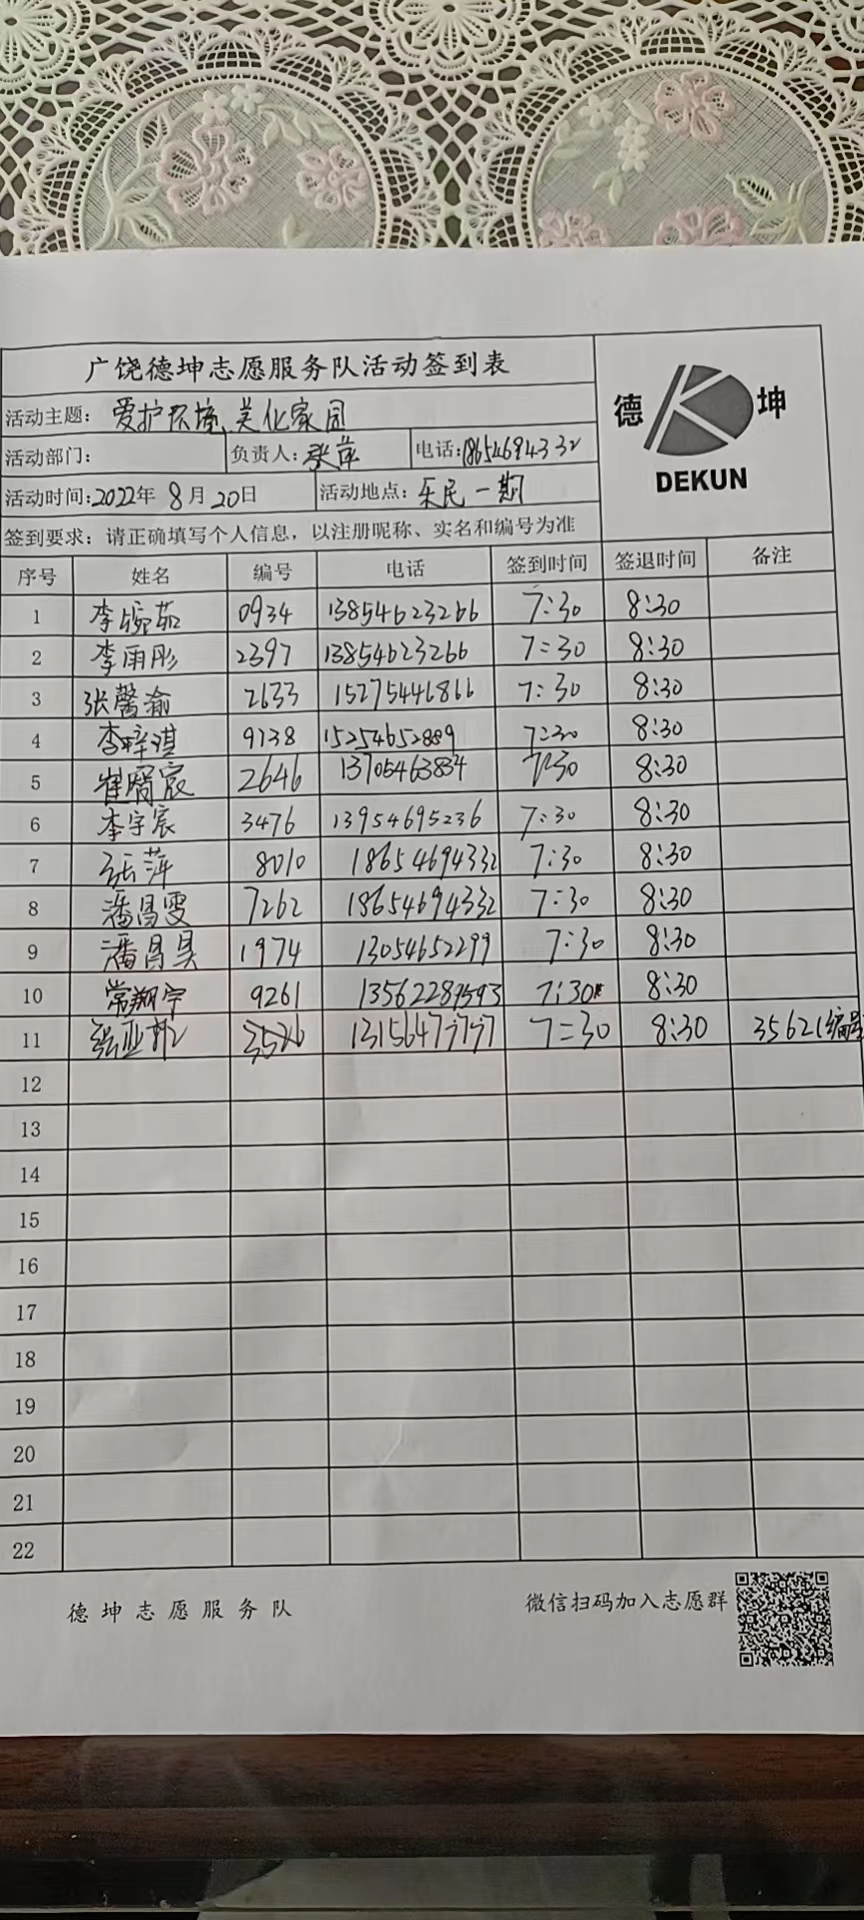 广饶德坤志愿服务队活动签到表
德 坤
DEKUN
活动主题：爱护环境、美化家园
活动部门： 负责人：张萍 电话：18654694332
活动时间：2022年 8月 20日 活动地点：乐民一期
签到要求：请正确填写个人信息，以注册昵称、实名和编号为准
序号 姓名 编号 电话 签到时间 签退时间 备注
1 李婉茹 0934 13854623266 7:30 8:30
2 李雨彤 2397 13854623266 7:30 8:30
3 张馨渝 2633 15275446866 7:30 8:30
4 李梓淇 9138 15254652889 7:30 8:30
5 崔宸 2646 13705463834 7:30 8:30
6 李宇宸 3476 13954695236 7:30 8:30
7 张萍 8010 18654694332 7:30 8:30
8 潘昌雯 7262 18654694332 7:30 8:30
9 潘昌昊 1974 13054652299 7:30 8:30
10 常翔宇 9261 13562289593 7:30 8:30
11 张亚 7:30 8:30 3562(编号
12
13
14
15
16
17
18
19
20
21
22
德坤志愿服务队 微信扫码加入志愿群